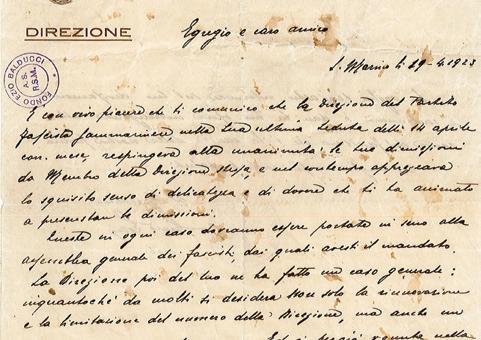 DIREZIONE
FONDO EZIO BALDUCCI
A.S.
R.S.M.
Egregio e caro amico
S. Marino li 29-4.1923
È con vivo piacere che ti comunico che la Direzione del Partito
Fascista Sammarinese nella sua ultima seduta delli 14 aprile
con. mese, respingeva alla unanimità le tue dimissioni
da Membro della Direzione stessa, e nel contempo apprezzava
lo squisito senso di delicatezza e di dovere che ti ha animato
a presentare le dimissioni.
Queste in ogni caso dovranno essere portate in seno alla
assemblea generale dei fascisti, dai quali avesti il mandato.
La Direzione poi del tuo ne ha fatto un caso generale:
inquantoché da molti si desidera non solo la rinnovazione
e la limitazione del numero della Direzione, ma anche un